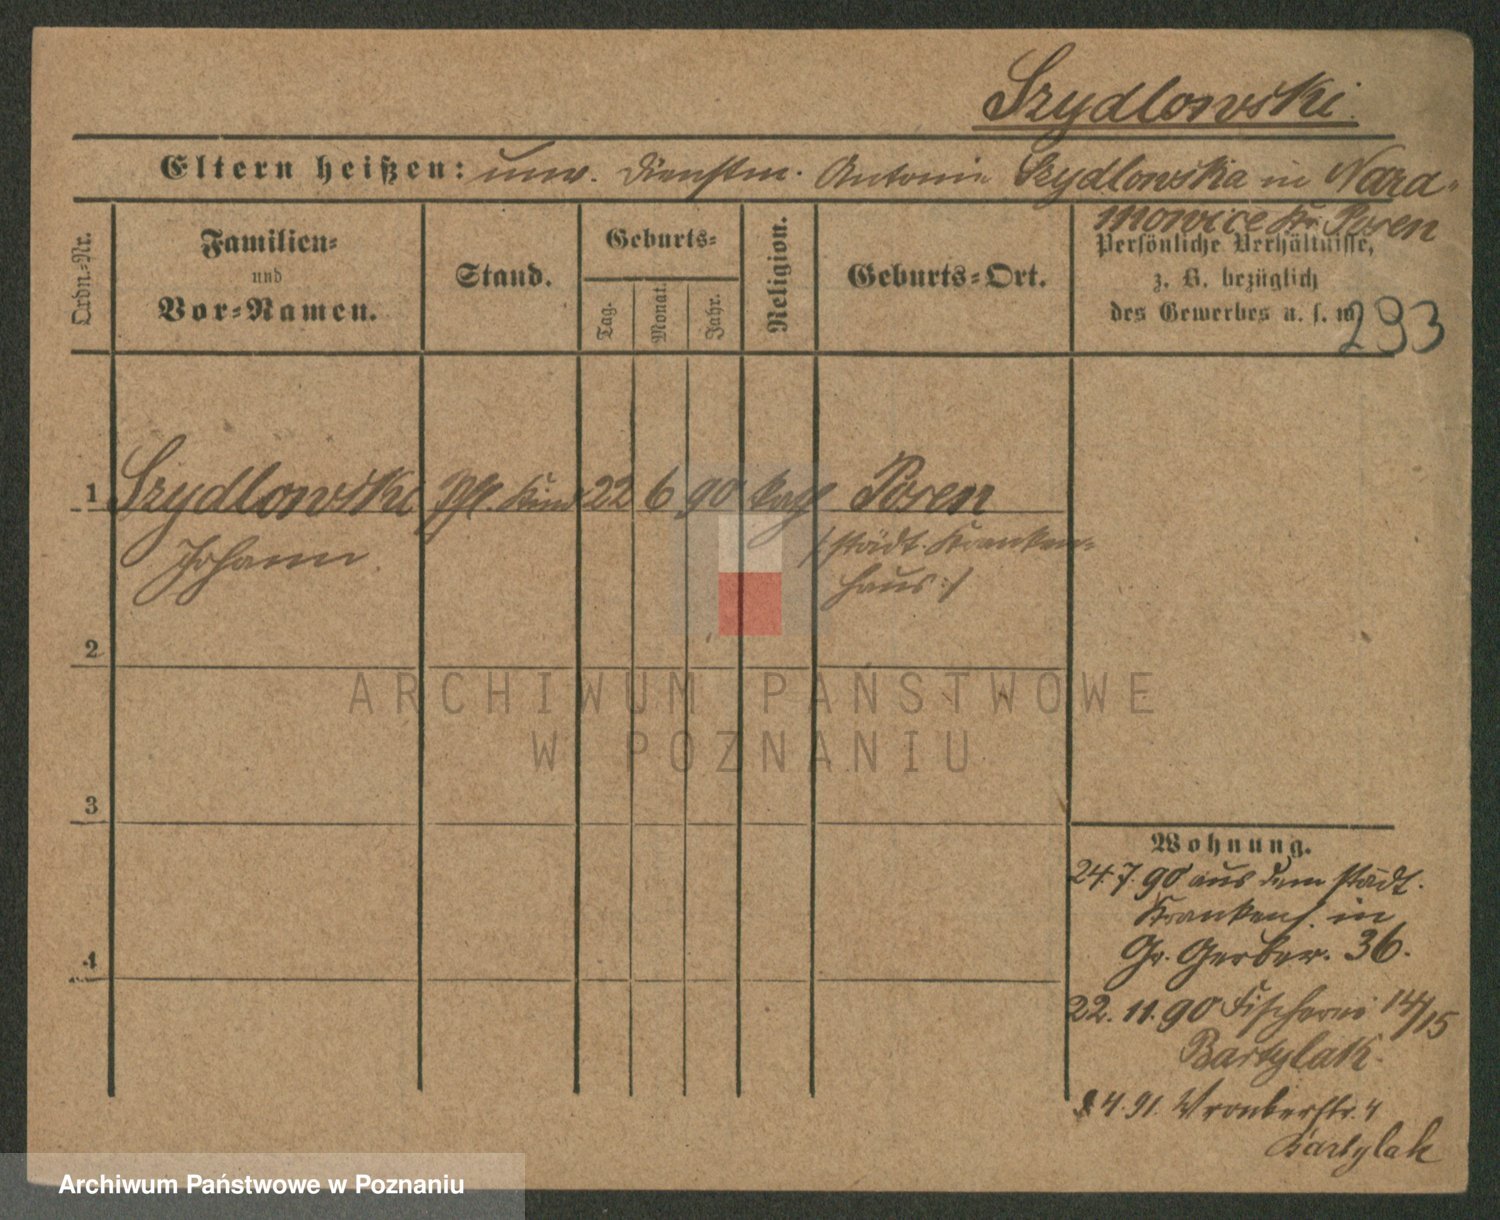 Szydlowski.
Eltern heißen: unv. Dienstm. Antonie Szydlowska in Nara-
mowice Kr. Posen
Ordn.-Nr.
Familien-
und
Vor-Namen.
Stand.
Geburts-
Tag.
Monat.
Jahr.
Religion.
Geburts-Ort.
Persönliche Verhältnisse,
z. B. bezüglich
des Gewerbes u. s. w.
293
1 Szydlowski Pfl. Kind 22 6 90 kath Posen
Johann
(städt. Kranken-
haus:)
2
3
4
Wohnung.
24.7.90 aus dem städt.
Krankenh. in
Gr. Gerber. 36.
22.11.90 Fischerei 14/15
Bartylak.
8 4.91. Wronkerstr. 4
Bartylak
ARCHIWUM PAŃSTWOWE
W POZNANIU
Archiwum Państwowe w Poznaniu